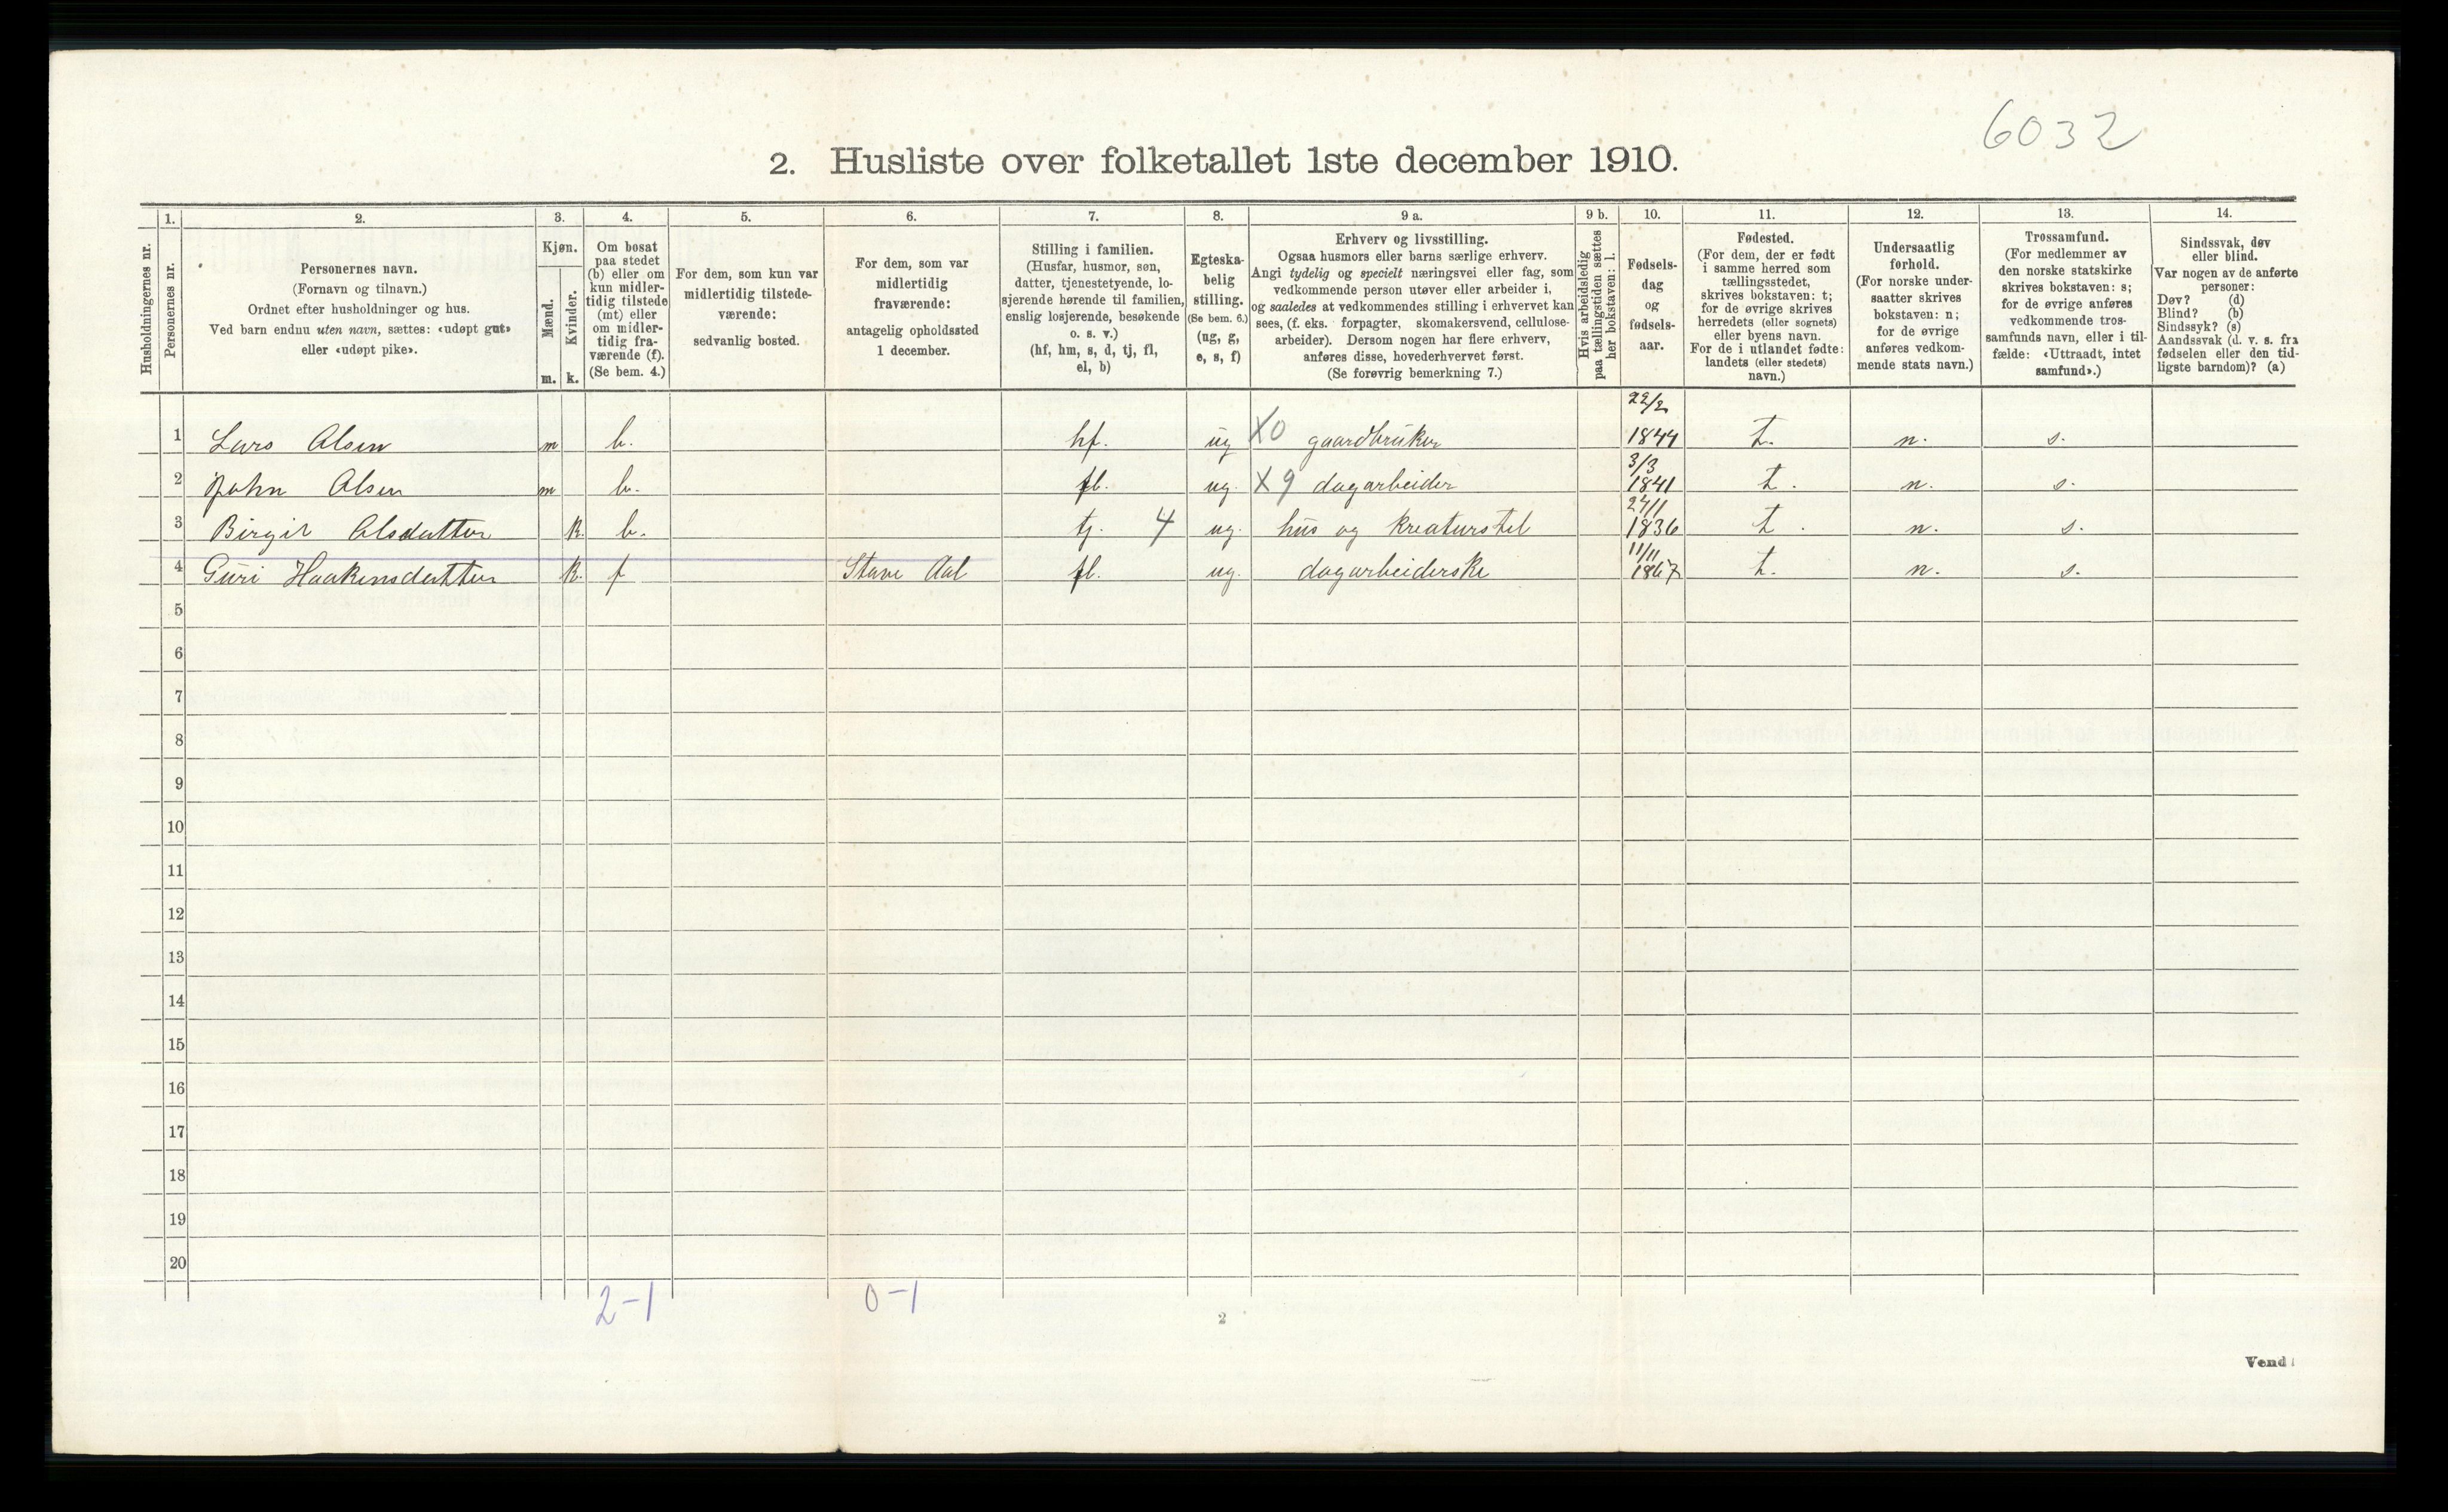 6032
2. Husliste over folketallet 1ste december 1910.
1. 2. 3. 4. 5. 6. 7. 8. 9 a. 9 b. 10. 11. 12. 13. 14.
Husholdningernes nr.
Personernes nr.
Personernes navn.
(Fornavn og tilnavn.)
Ordnet efter husholdninger og hus.
Ved barn endnu uten navn, sættes: «udøpt gut»
eller «udøpt pike».
Kjøn.
Mænd.
Kvinder.
m. k.
Om bosat
paa stedet
(b) eller om
kun midler-
tidig tilstede
(mt) eller
om midler-
tidig fra-
værende (f).
(Se bem. 4.)
For dem, som kun var
midlertidig tilstede-
værende:
sedvanlig bosted.
For dem, som var
midlertidig
fraværende:
antagelig opholdssted
1 december.
Stilling i familien.
(Husfar, husmor, søn,
datter, tjenestetyende, lo-
sjerende hørende til familien,
enslig losjerende, besøkende
o. s. v.)
(hf, hm, s, d, tj, fl,
el, b)
Egteska-
belig
stilling.
(Se bem. 6.)
(ug, g,
e, s, f)
Erhverv og livsstilling.
Ogsaa husmors eller barns særlige erhverv.
Angi tydelig og specielt næringsvei eller fag, som
vedkommende person utøver eller arbeider i,
og saaledes at vedkommendes stilling i erhvervet kan
sees, (f. eks. forpagter, skomakersvend, cellulose-
arbeider). Dersom nogen har flere erhverv,
anføres disse, hovederhvervet først.
(Se forøvrig bemerkning 7.)
Hvis arbeidsledig
paa tællingstiden sættes
her bokstaven: l.
Fødsels-
dag
og
fødsels-
aar.
Fødested.
(For dem, der er født
i samme herred som
tællingsstedet,
skrives bokstaven: t;
for de øvrige skrives
herredets (eller sognets)
eller byens navn.
For de i utlandet fødte:
landets (eller stedets)
navn.)
Undersaatlig
forhold.
(For norske under-
saatter skrives
bokstaven: n;
for de øvrige
anføres vedkom-
mende stats navn.)
Trossamfund.
(For medlemmer av
den norske statskirke
skrives bokstaven: s;
for de øvrige anføres
vedkommende tros-
samfunds navn, eller i til-
fælde: «Uttraadt, intet
samfund».)
Sindssvak, døv
eller blind.
Var nogen av de anførte
personer:
Døv? (d)
Blind? (b)
Sindssyk? (s)
Aandssvak (d. v. s. fra
fødselen eller den tid-
ligste barndom)? (a)
22/2
1 Lars Olsen m b. hf. ug X0 gaardbruker 1844 t. n. s.
3/3
2 John Olsen m b. fl. ug. X9 dagarbeider 1841 t. n. s.
27/1
3 Birgit Olsdatter k. b. tj. 4 ug. hus og kreaturstel 1836 t. n. s.
11/11
4 Guri Haakensdatter k. f Stave Aal fl. ug. dagarbeiderske 1867 t. n. s.
5
6
7
8
9
10
11
12
13
14
15
16
17
18
19
20
2-1 0-1
2
Vend!